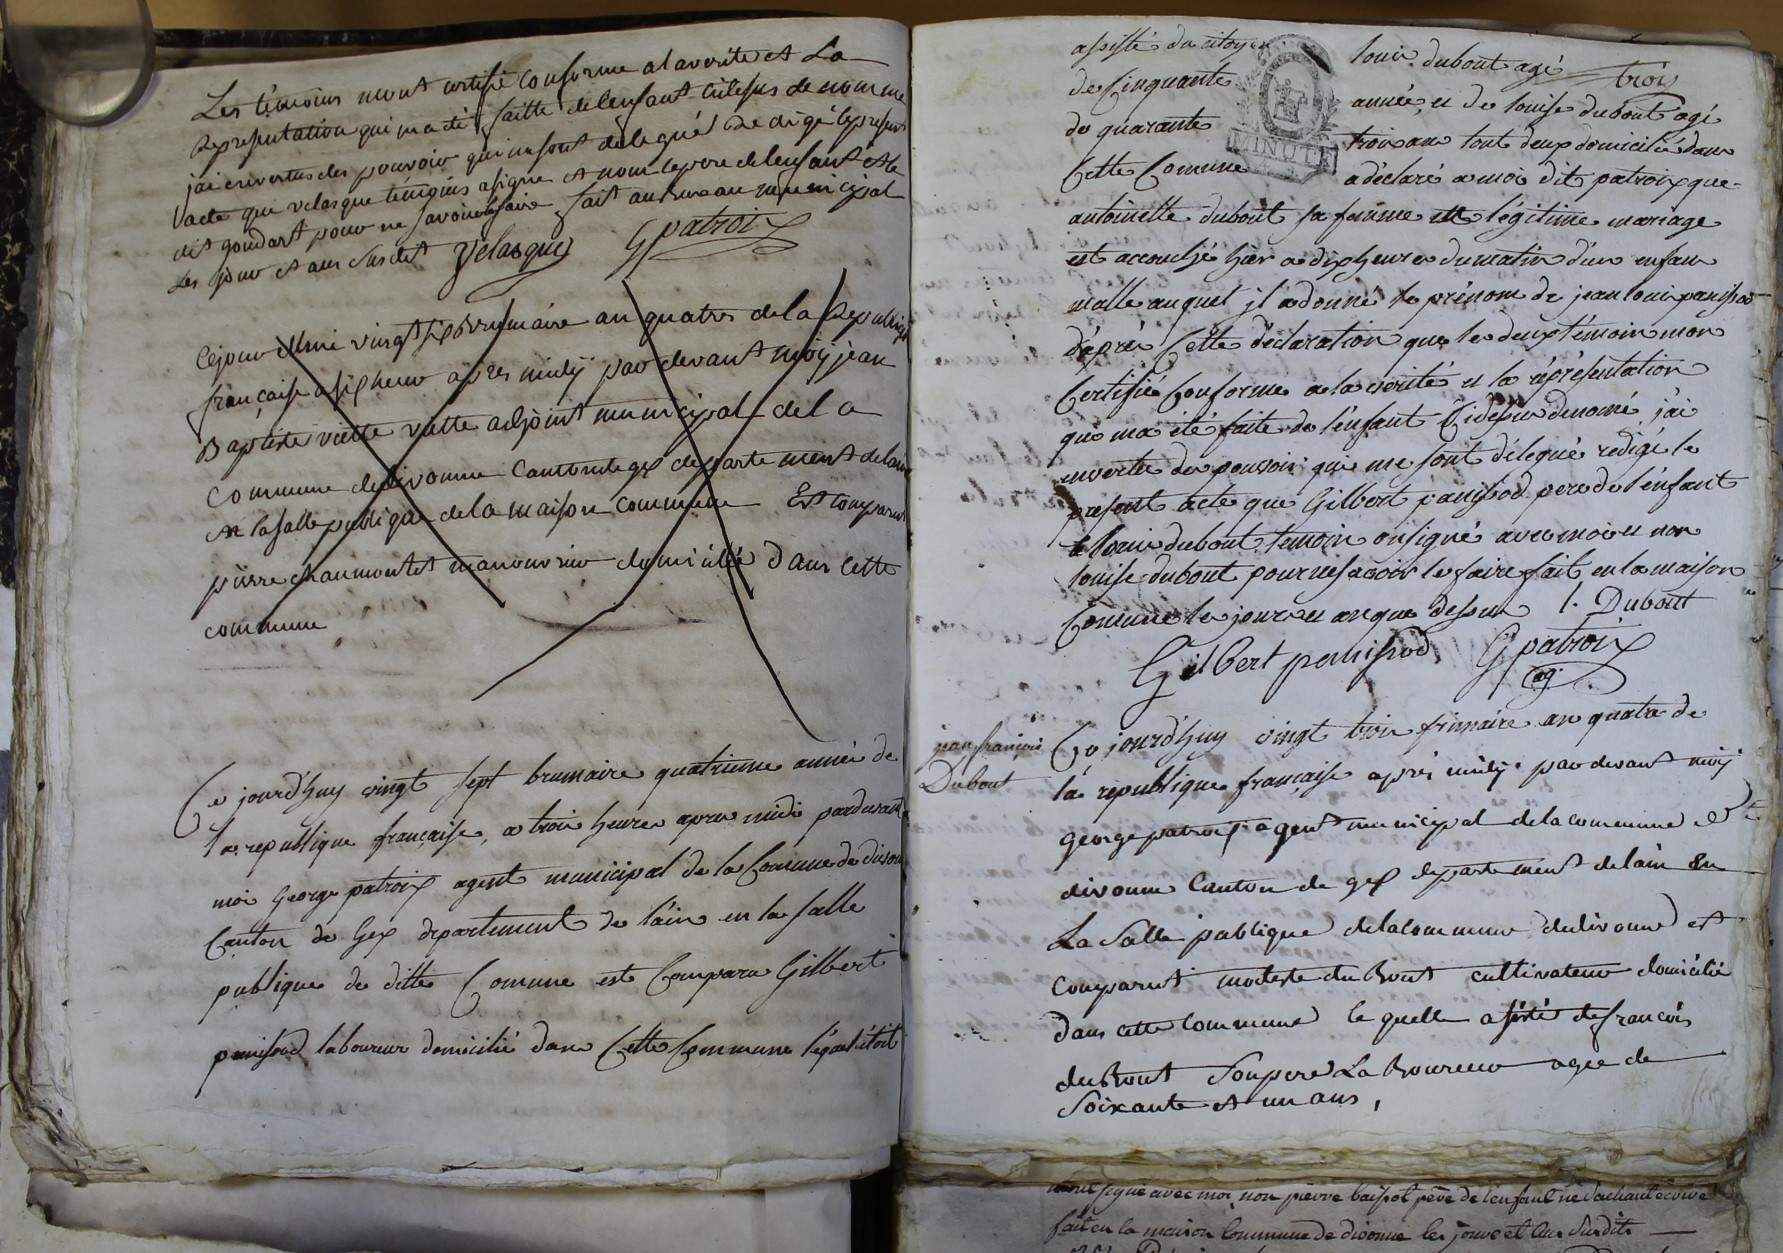 Les témoins mont certifié conforme a la verite et La
Representation qui ma été faitte de lenfant cidesus denommé
jai en vertus des pouvoir qui me sont delegué Redigé le present
acte que velasque temoins a signe et nom le pere de lenfant et le
dit goudart pour ne savoir le faire fait au Bureau municipal
Les jour et an susdit Velasque G patroix
Cejourdhui vingt six Brumaire an quatres de la Republique
française a six heure apres midÿ par devant moÿ jean
Baptiste viette adjoint municipal de la
Commune de divonne Canton de gex departement de lain
en la salle publique de la maison commune Est comparut
piérre chaumontet manouvrier domicillié dans cette
commune
Ce jourd'huy vingt sept brumaire quatrieme année de
la republique française, a trois heures apres midi pardevant
moi George patroix agent municipal de la Comune de divonne
Canton de Gex departement de l'ain en la salle
publique de ditte Comune est Comparu Gilbert
panissod laboureur domicilié dans Cette Commune lequel étoit
assisté du citoyen louis dubout agé
de Cinquante trois
année, et de louise dubout agé
de quarante trois ans tout deux domicilié dans
Cette Comune a déclaré a moi dit patroix que
antoinette dubout sa femme légitime mariage
est accouchée hier a dix heures du matin d'un enfant
malle auquel il a donné le prénom de jean louis panissod
d'après Cette déclaration que les deux témoin mon
Certifié Conforme a la vérité et la répresentation
qui ma été faite de l'enfant Cidessu denomé, j'ai
en vertu des pouvoir qui me sont délegué redigé le
present acte que Gilbert panissod pere de l'enfant
et louis dubout temoin on signé avec moi et non
louise dubout pour ne savoir le faire fait en la maison
Comune les jours et an que dessus l. Dubout
Gilbert panissod G patroix
ag
jean françois
Dubout
Ce jourd'huy vingt trois frimaire an quatre de
la republique française après midy par devant moy
George patroix agent municipal de la commune de
divonne Canton de gex departement de lain En
La Salle publique de la commune de divonne est
Comparut modeste du Bout cultivateur domicilié
dans cette Commune le quelle assisté de francois
du Bout Son pere La Boureur agee de
Soixante et un ans,
signé avec moi non pierre baissot père de l'enfant ne sachant écrire
fait en la maison Commune de divonne les jours et an susdits
MINUTE